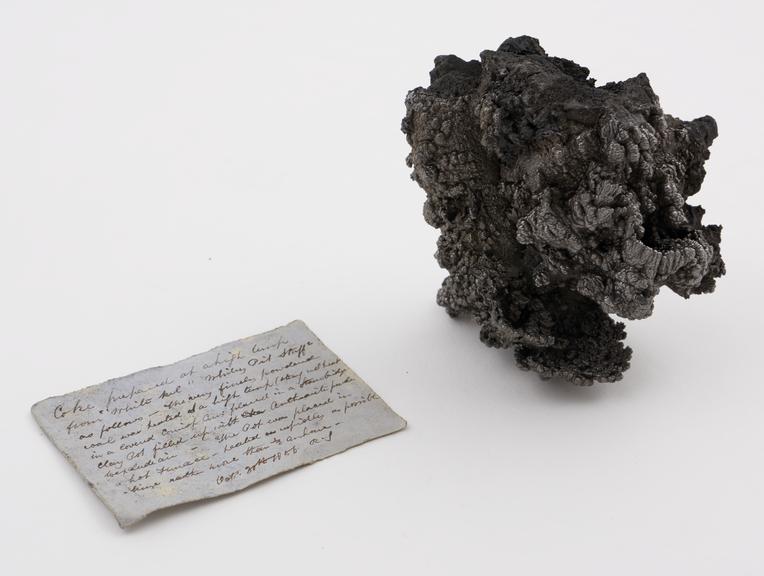 Coke prepared at a high temp
from "White " Whitley Pit Staffs
as follows - The very finely powdered
coal was heated at a high temp (
in a covered placed in a Stourbridge
clay Pot filled up with Anthracite
- The Pot was placed in
a hot furnace - heated as rapidly as possible
time rather more than ½ an hour -
Oct